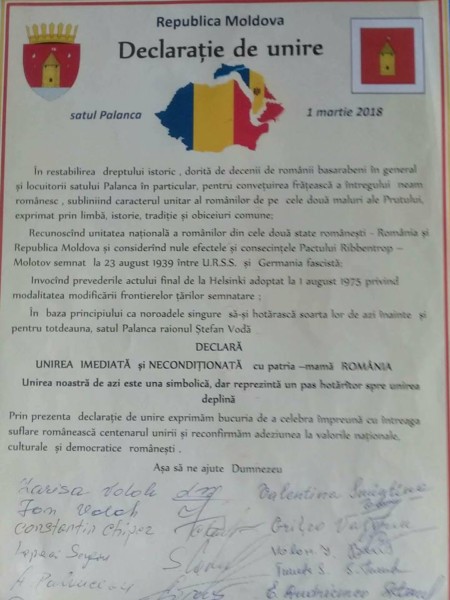 Republica Moldova
Declarație de unire
satul Palanca
1 martie 2018
În restabilirea dreptului istoric , dorită de decenii de românii basarabeni în general
și locuitorii satului Palanca în particular, pentru convețuirea frățească a întregului neam
românesc , subliniind caracterul unitar al românilor de pe cele două maluri ale Prutului,
exprimat prin limbă, istorie, tradiție și obiceiuri comune;
Recunoscînd unitatea națională a românilor din cele două state românești - România și
Republica Moldova și considerînd nule efectele și consecințele Pactului Ribbentrop –
Molotov semnat la 23 august 1939 între U.R.S.S. și Germania fascistă;
Invocînd prevederile actului final de la Helsinki adoptat la 1 august 1975 privind
modalitatea modificării frontierelor țărilor semnatare ;
În baza principiului ca noroadele singure să-și hotărască soarta lor de azi înainte și
pentru totdeauna, satul Palanca raionul Ștefan Vodă
DECLARĂ
UNIREA IMEDIATĂ și NECONDIȚIONATĂ cu patria –mamă ROMÂNIA
Unirea noastră de azi este una simbolică, dar reprezintă un pas hotărîtor spre unirea
deplină
Prin prezenta declarație de unire exprimăm bucuria de a celebra împreună cu întreaga
suflare românească centenarul unirii și reconfirmăm adeziunea la valorile naționale,
culturale și democratice românești .
Așa să ne ajute Dumnezeu
Larisa Voloh
Valentina
Ion Voloh
Constantin Chiper